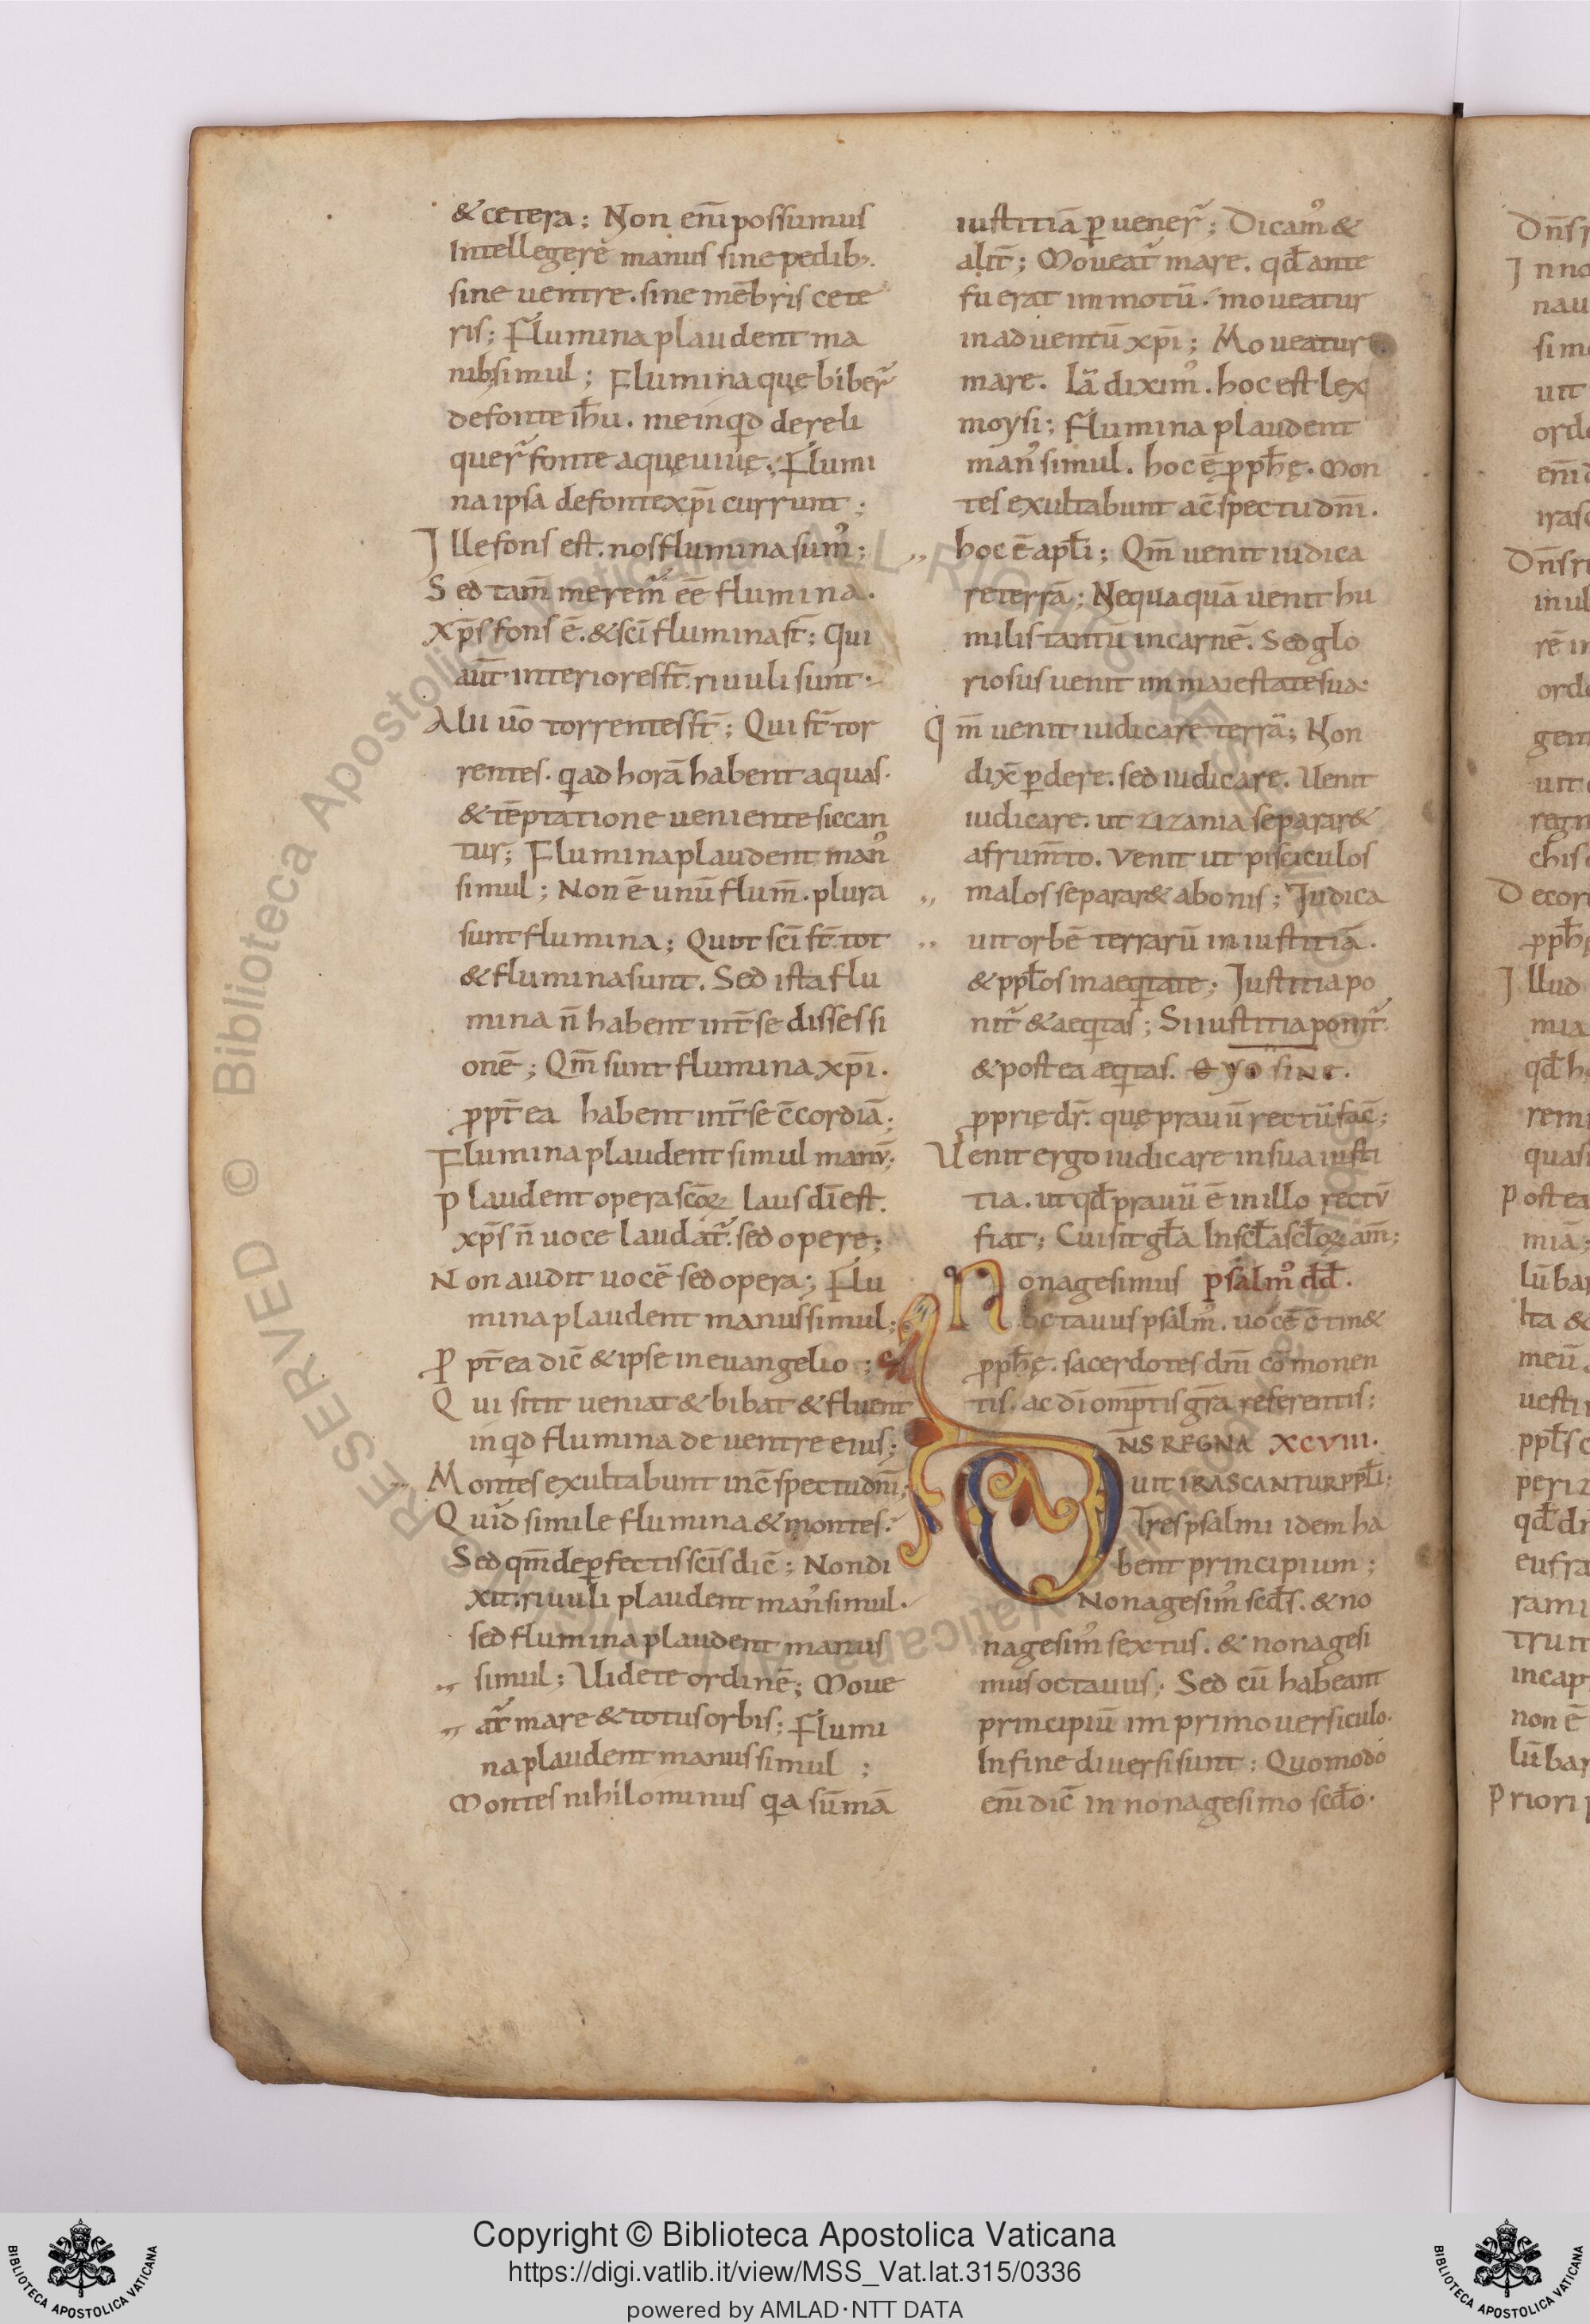 & cetera; Non eni᷎ possumus
Intellegere manus sine pedib;.
sine uentre. sine me᷎bris cete
ris; Flumina plaudent ma
nib; simul; Flumina quę biber̄
de fonte ih̄u. me inqd dereli
quer̄ fonte aquę uiuę; Flumi
na ipsa de fonte xp̄i currunt;
Ille fons est. nos flumina sum᾽;
Sed tam̄ merem᾽ ēē flumina.
Xp̄s fons ē. & sc̄i flumina st̄; Qui
aut̄ interiores st̄. riuuli sunt.
Alii uō torrentes st̄; Qui st̄ tor
rentes. q ad horā habent aquas.
& tēptatione ueniente siccan
tur; Flumina plaudent man᾽
simul; Non ē unū flum̄. plura
sunt flumina; Quot sc̄i st̄. tot
& flumina sunt. Sed ista flu
mina n̄ habent int̄ se dissessi
onē; Qm̄ sunt flumina xp̄i.
ꝓpt̄ea habent int̄ se c̄cordiā;
Flumina plaudent simul manꝰ;
Plaudent opera sc̄oꝝ laus dī est.
xp̄s n̄ uoce laudat᷑. sed opere;
Non audit uocē sed opera; Flu
mina plaudent manus simul;
Ꝓpt̄ea dic̄ & ipse in euangelio;
Qui sitit ueniat & bibat & fluent
inqd flumina de uentre eius;
Montes exultabunt in c̄spectu dn̄i;
Quid simile flumina & montes.
Sed qm̄ de ꝑfectis sc̄is dic̄; Non di
xit. riuuli plaudent man᾽ simul.
sed flumina plaudent manus
simul; Uidete ordinē; Moue
at᷑ mare & totus orbis; Flumi
na plaudent manus simul;
Montes nihilominus qa sūmā
iustitiā ꝑuener̄; Dicam᾽ &
alit̄; Moueat᷑ mare. qd̄ ante
fuerat immotū. moueatur
in aduentū xp̄i; Moueatur
mare. Iā diximꝰ. hoc est lex
moysi; Flumina plaudent
man᾽ simul. hoc ē ꝓph̄ę. Mon
tes exultabunt a c̄spectu dn̄i.
hoc ē apl̄i; Qm̄ uenit iudica
re terrā; Nequaquā uenit hu
milis tantū in carnē. Sed glo
riosus uenit in maiestate sua.
Qm̄ uenit iudicare terrā; Non
dix̄ ꝑdere. sed iudicare. Uenit
iudicare. ut zizania separar&
a frum̄to. Venit ut pisciculos
malos separar& a bonis; Iudica
uit orbē terrarū in iustitiā.
& ppl̄os in aeqitate; Iustitia po
nit᷑ & aeqitas; Si iustitia ponit᷑.
& postea aeqitas.
ꝓprie dr̄. quę prauū rectū fac̄;
Uenit ergo iudicare in sua iusti
tia. ut qd̄ prauū ē in illo rectū
fiat; Cui sit gl̄a In scl̄a scl̄oꝝ am̄;
Nonagesimus psalm᾽ dd̄.
octauus psalm᾽. uocē c̄tin&
ꝓph̄ę. sacerdotes dn̄i cōmonen
tis. ac dī omp̄tis gr̄a referentis;
DNS REGNA XCVIII.
UIT IRASCANTUR PPL̄I;
Tres psalmi idem ha
bent principium;
Nonagesim᾽ scd̄s. & no
nagesim᾽ sextus. & nonagesi
mus octauus; Sed cū habeant
principiū in primo uersiculo.
In fine diuersi sunt; Quomodo
eni᷎ dic̄ in nonagesimo scd̄o.
Copyright © Biblioteca Apostolica Vaticana
https://digi.vatlib.it/view/MSS_Vat.lat.315/0336
powered by AMLAD·NTT DATA
BIBLIOTECA APOSTOLICA VATICANA
BIBLIOTECA APOSTOLICA VATICANA